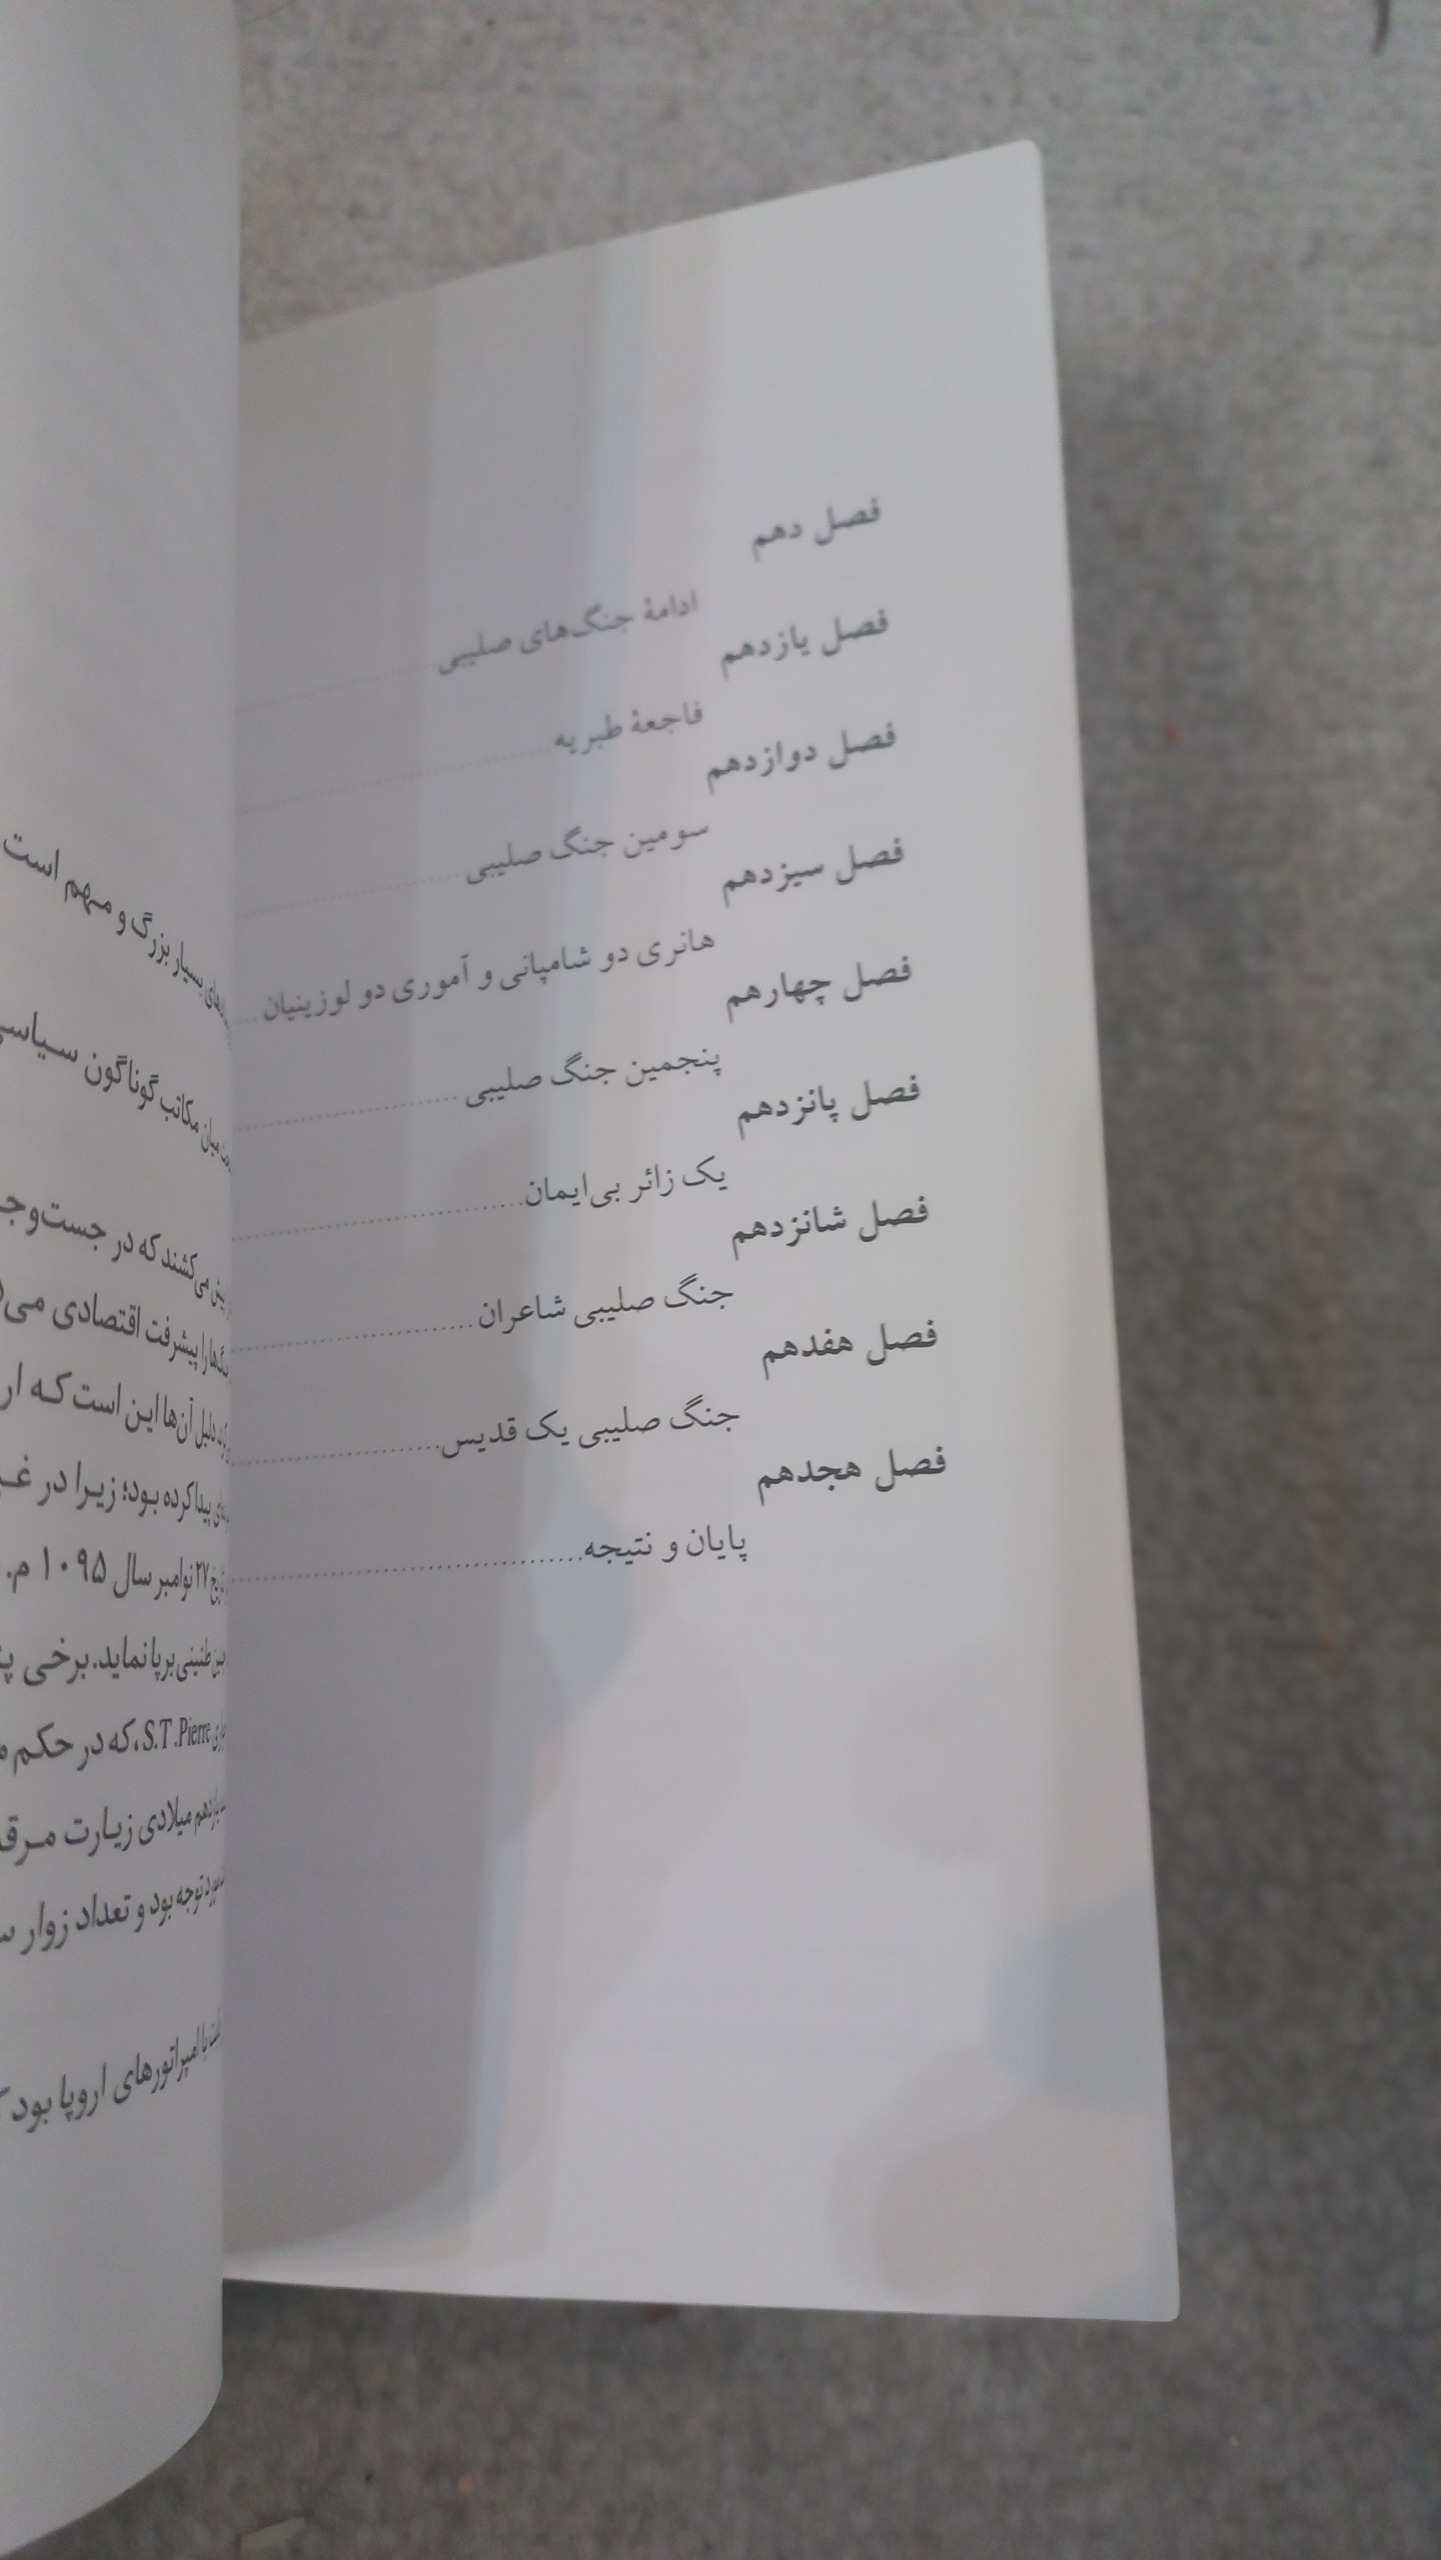 فصل دهم
ادامهٔ جنگ‌های صلیبی
فصل یازدهم
فاجعهٔ طبریه
فصل دوازدهم
سومین جنگ صلیبی
فصل سیزدهم
هانری دو شامپانی و آموری دو لوزینیان
فصل چهارهم
پنجمین جنگ صلیبی
فصل پانزدهم
یک زائر بی‌ایمان
فصل شانزدهم
جنگ صلیبی شاعران
فصل هفدهم
جنگ صلیبی یک قدیس
فصل هجدهم
پایان و نتیجه
بسیار بزرگ و مهم است
میان مکاتب گوناگون سیاسی
پیش می‌کشند که در جست‌وجـ
را پیشرفت اقتصادی می‌
دلیل آن‌ها این است که
پیدا کرده بود؛ زیرا در
۲۷ نوامبر سال ۱۰۹۵ م.
طنینی برپا نماید. برخی
S.T.Pierre، که در حکم
میلادی زیارت
توجه بود و تعداد زوار
با امپراتورهای اروپا بود